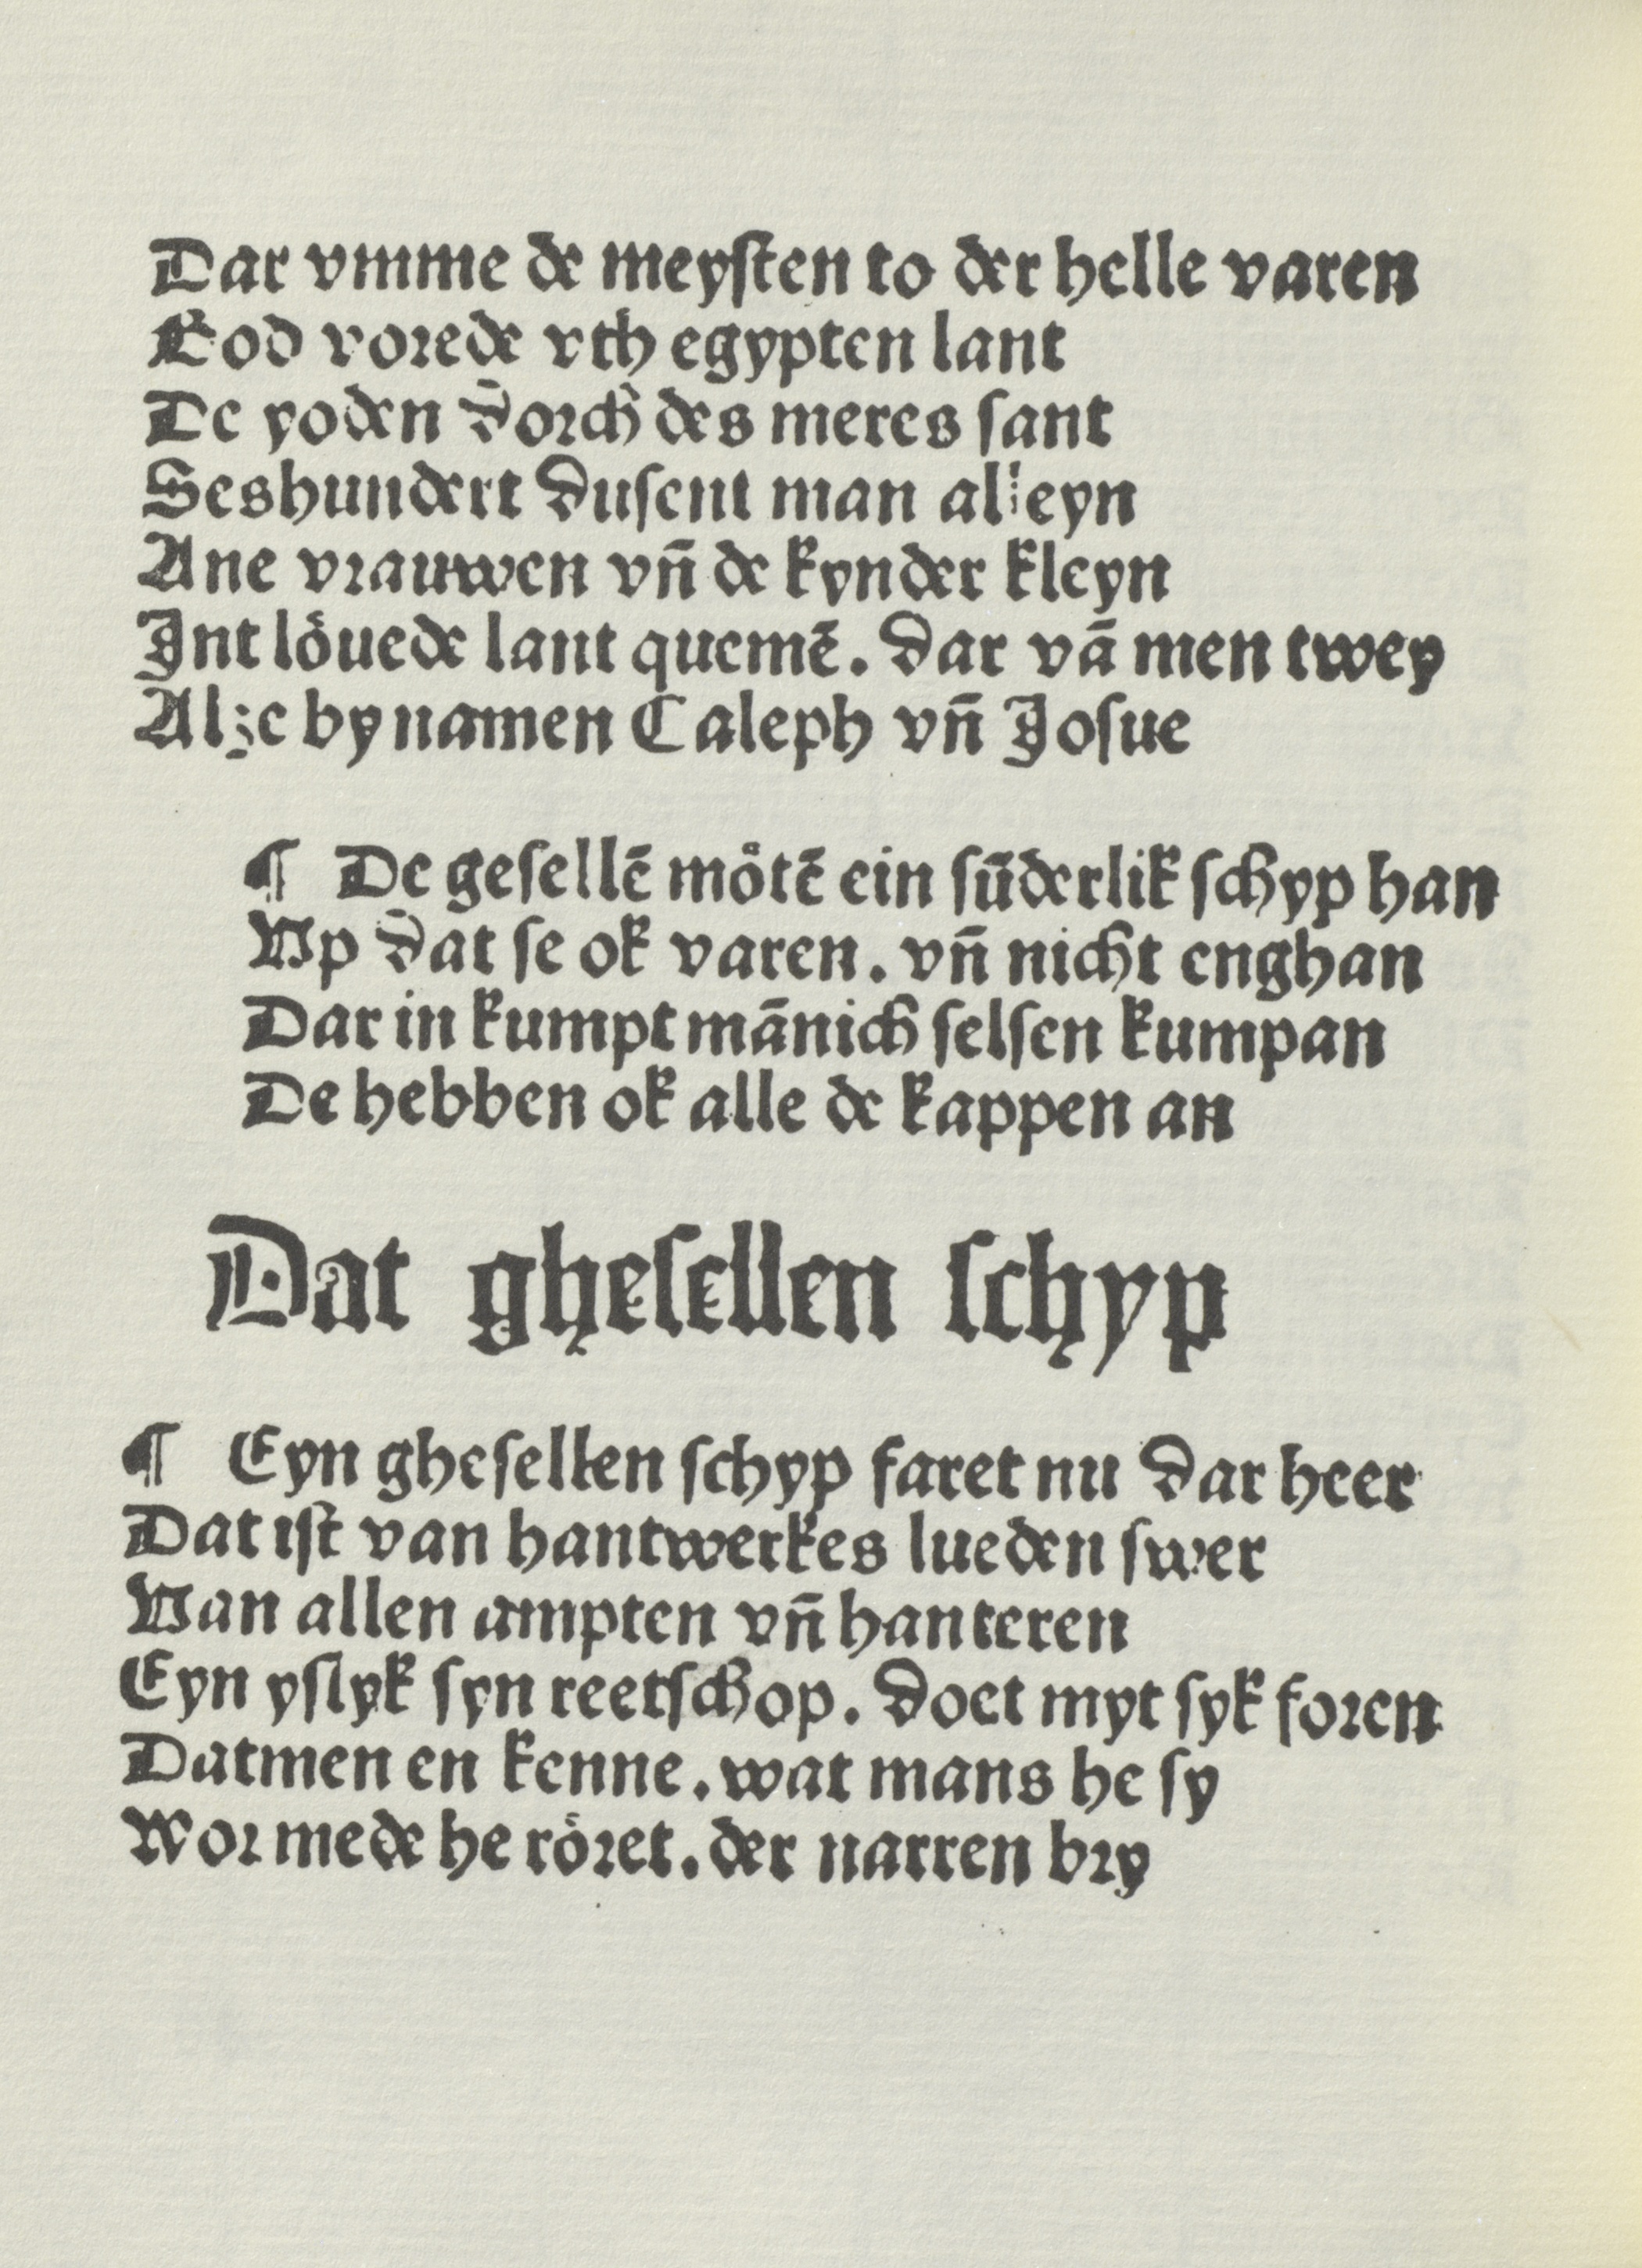 Dar vmme de meyſten to der helle varen
God vorede vth egypten lant
De yoden dorch des meres ſant
Seshundert duſent man alleyn
Ane vrauwen vn̄ de kynder kleyn
Int lo̊uede lant quemē. dar vā men twey
Alze by namen Caleph vn̄ Joſue
¶ De geſellē mo̊tē ein ſūderlik ſchyp han
Vp dat ſe ok varen. vn̄ nicht enghan
Dar in kumpt mānich ſelſen kumpan
De hebben ok alle de kappen an
Dat gheſellen ſchyp
¶ Eyn gheſellen ſchyp faret nu dar heer
Dat iſt van hantwerkes lueden ſwer
Van allen ampten vn̄ hanteren
Eyn yſlyk ſyn reetſchop. doet myt ſyk foren
Datmen en kenne. wat mans he ſy
Wor mede he ro̊ret. der narren bry